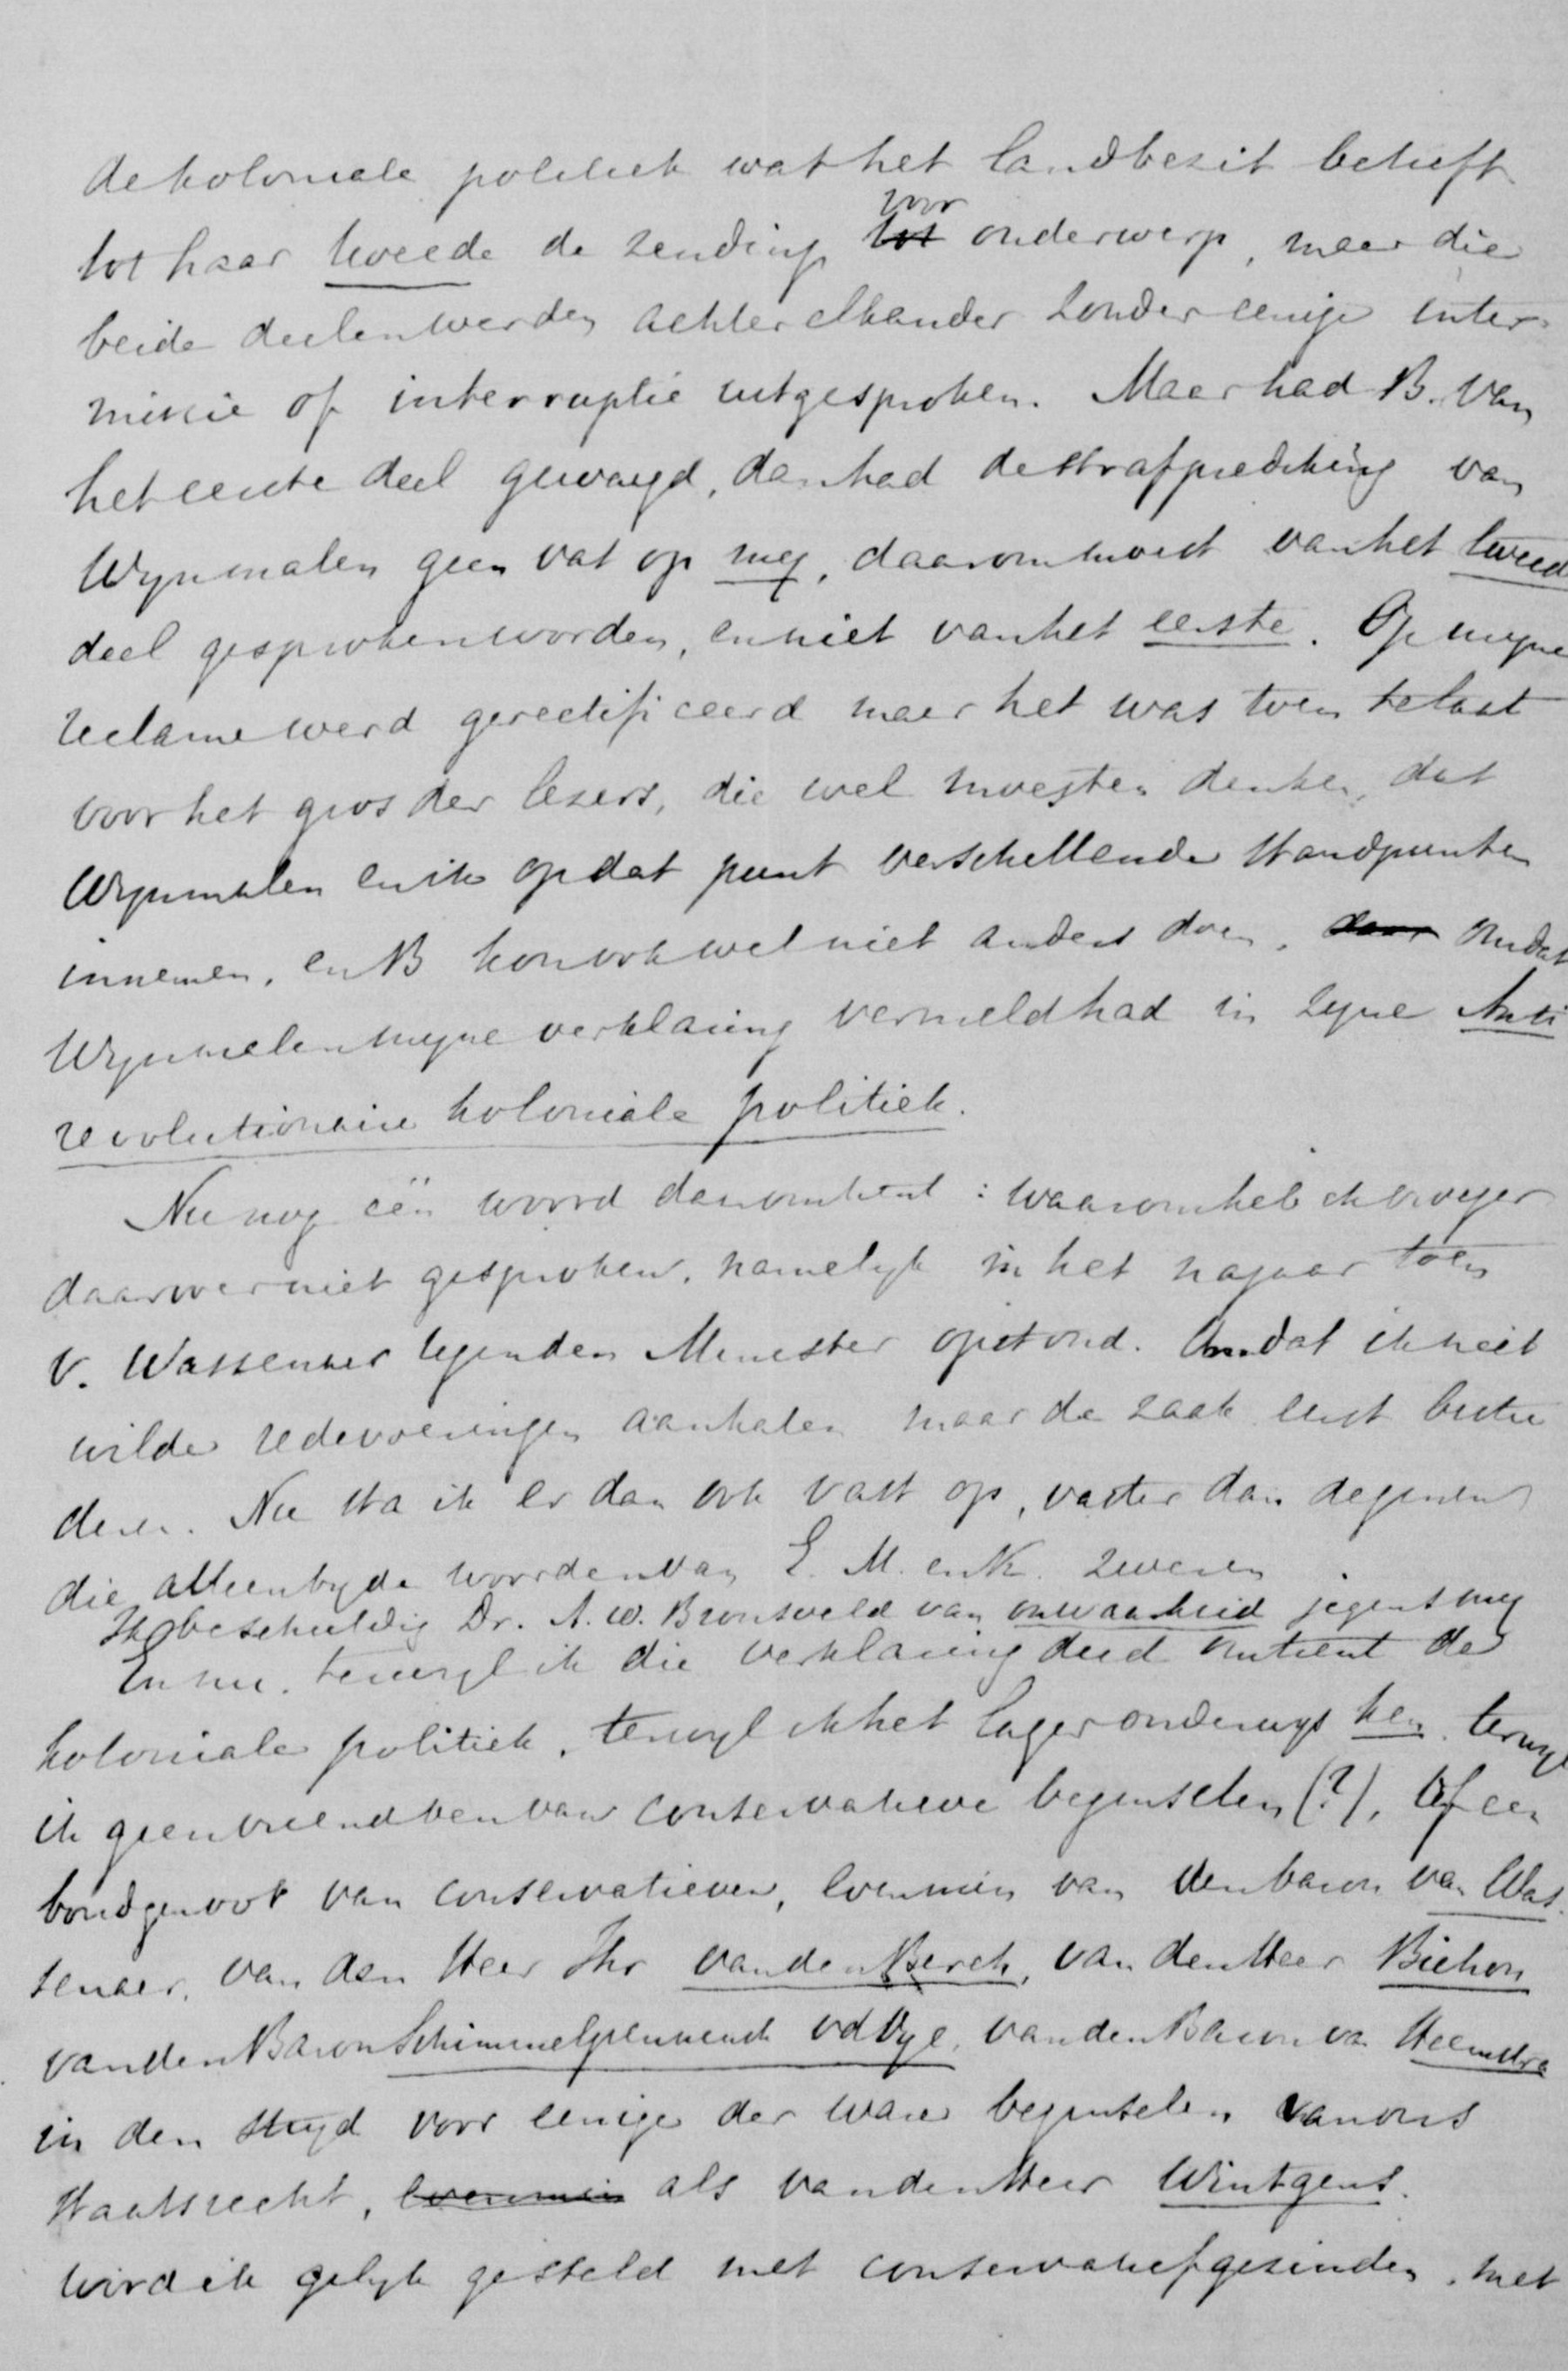 de koloniale politiek wat het landbezit betreft
tot haar tweede de zending voor tot onderwerp, maar die
beide deelen werden achter elkander zonder eenige inter-
missie of interruptie uitgesproken. Maar had B. van
het eerste deel gewaagd, dan had de strafprediking van
Wynmalen geen vat op my, daarom moest van het tweed
deel gesproken worden, en niet van het eerste. Op myne
reclame werd gerectificeerd maar het was toen te laat
voor het gros der lezers, die wel moesten denken, dat
Wynmalen en ik op dat punt verschillende standpunten
innemen, en B kon ook wel niet anders doen, daar omdat
Wynmalen myne verklaring vermeld had in zyne Anti
revolutionaire koloniale politiek.
Nu nog één woord daaromtrent: waarom heb ik vroeger
daarover niet gesproken, namelyk in het najaar toen
v. Wassenaer tegen den Minister opstond. Omdat ik niet
wilde redevoeringen aanhalen maar de zaak eerst bestu
deren. Nu sta ik er dan ook vast op, vaster dan degenen
die alleen by de woorden van E. M. en K. zweren
Ik beschuldig Dr. A. W. Bronsveld van onwaarheid jegens my
En nu, terwyl ik die verklaring deed omtrent de
koloniale politiek, terwyl ik het lager onderwys ken, terwyl
ik geen vriend ben van conservatieve beginselen (?), of een
bondgenoot van conservatieven, evenmin van den baron van Was
senaer, van den Heer Jhr van den Berch, van den Heer Bichon
van den Baron Schimmelpenninck vd Oye, van den Baron van Heemstra
in den stryd voor eenige der ware beginselen van ons
Staatsrecht, evenmin als van den Heer Wintgens.
word ik gelyk gesteld met conservatiefgezinden, met